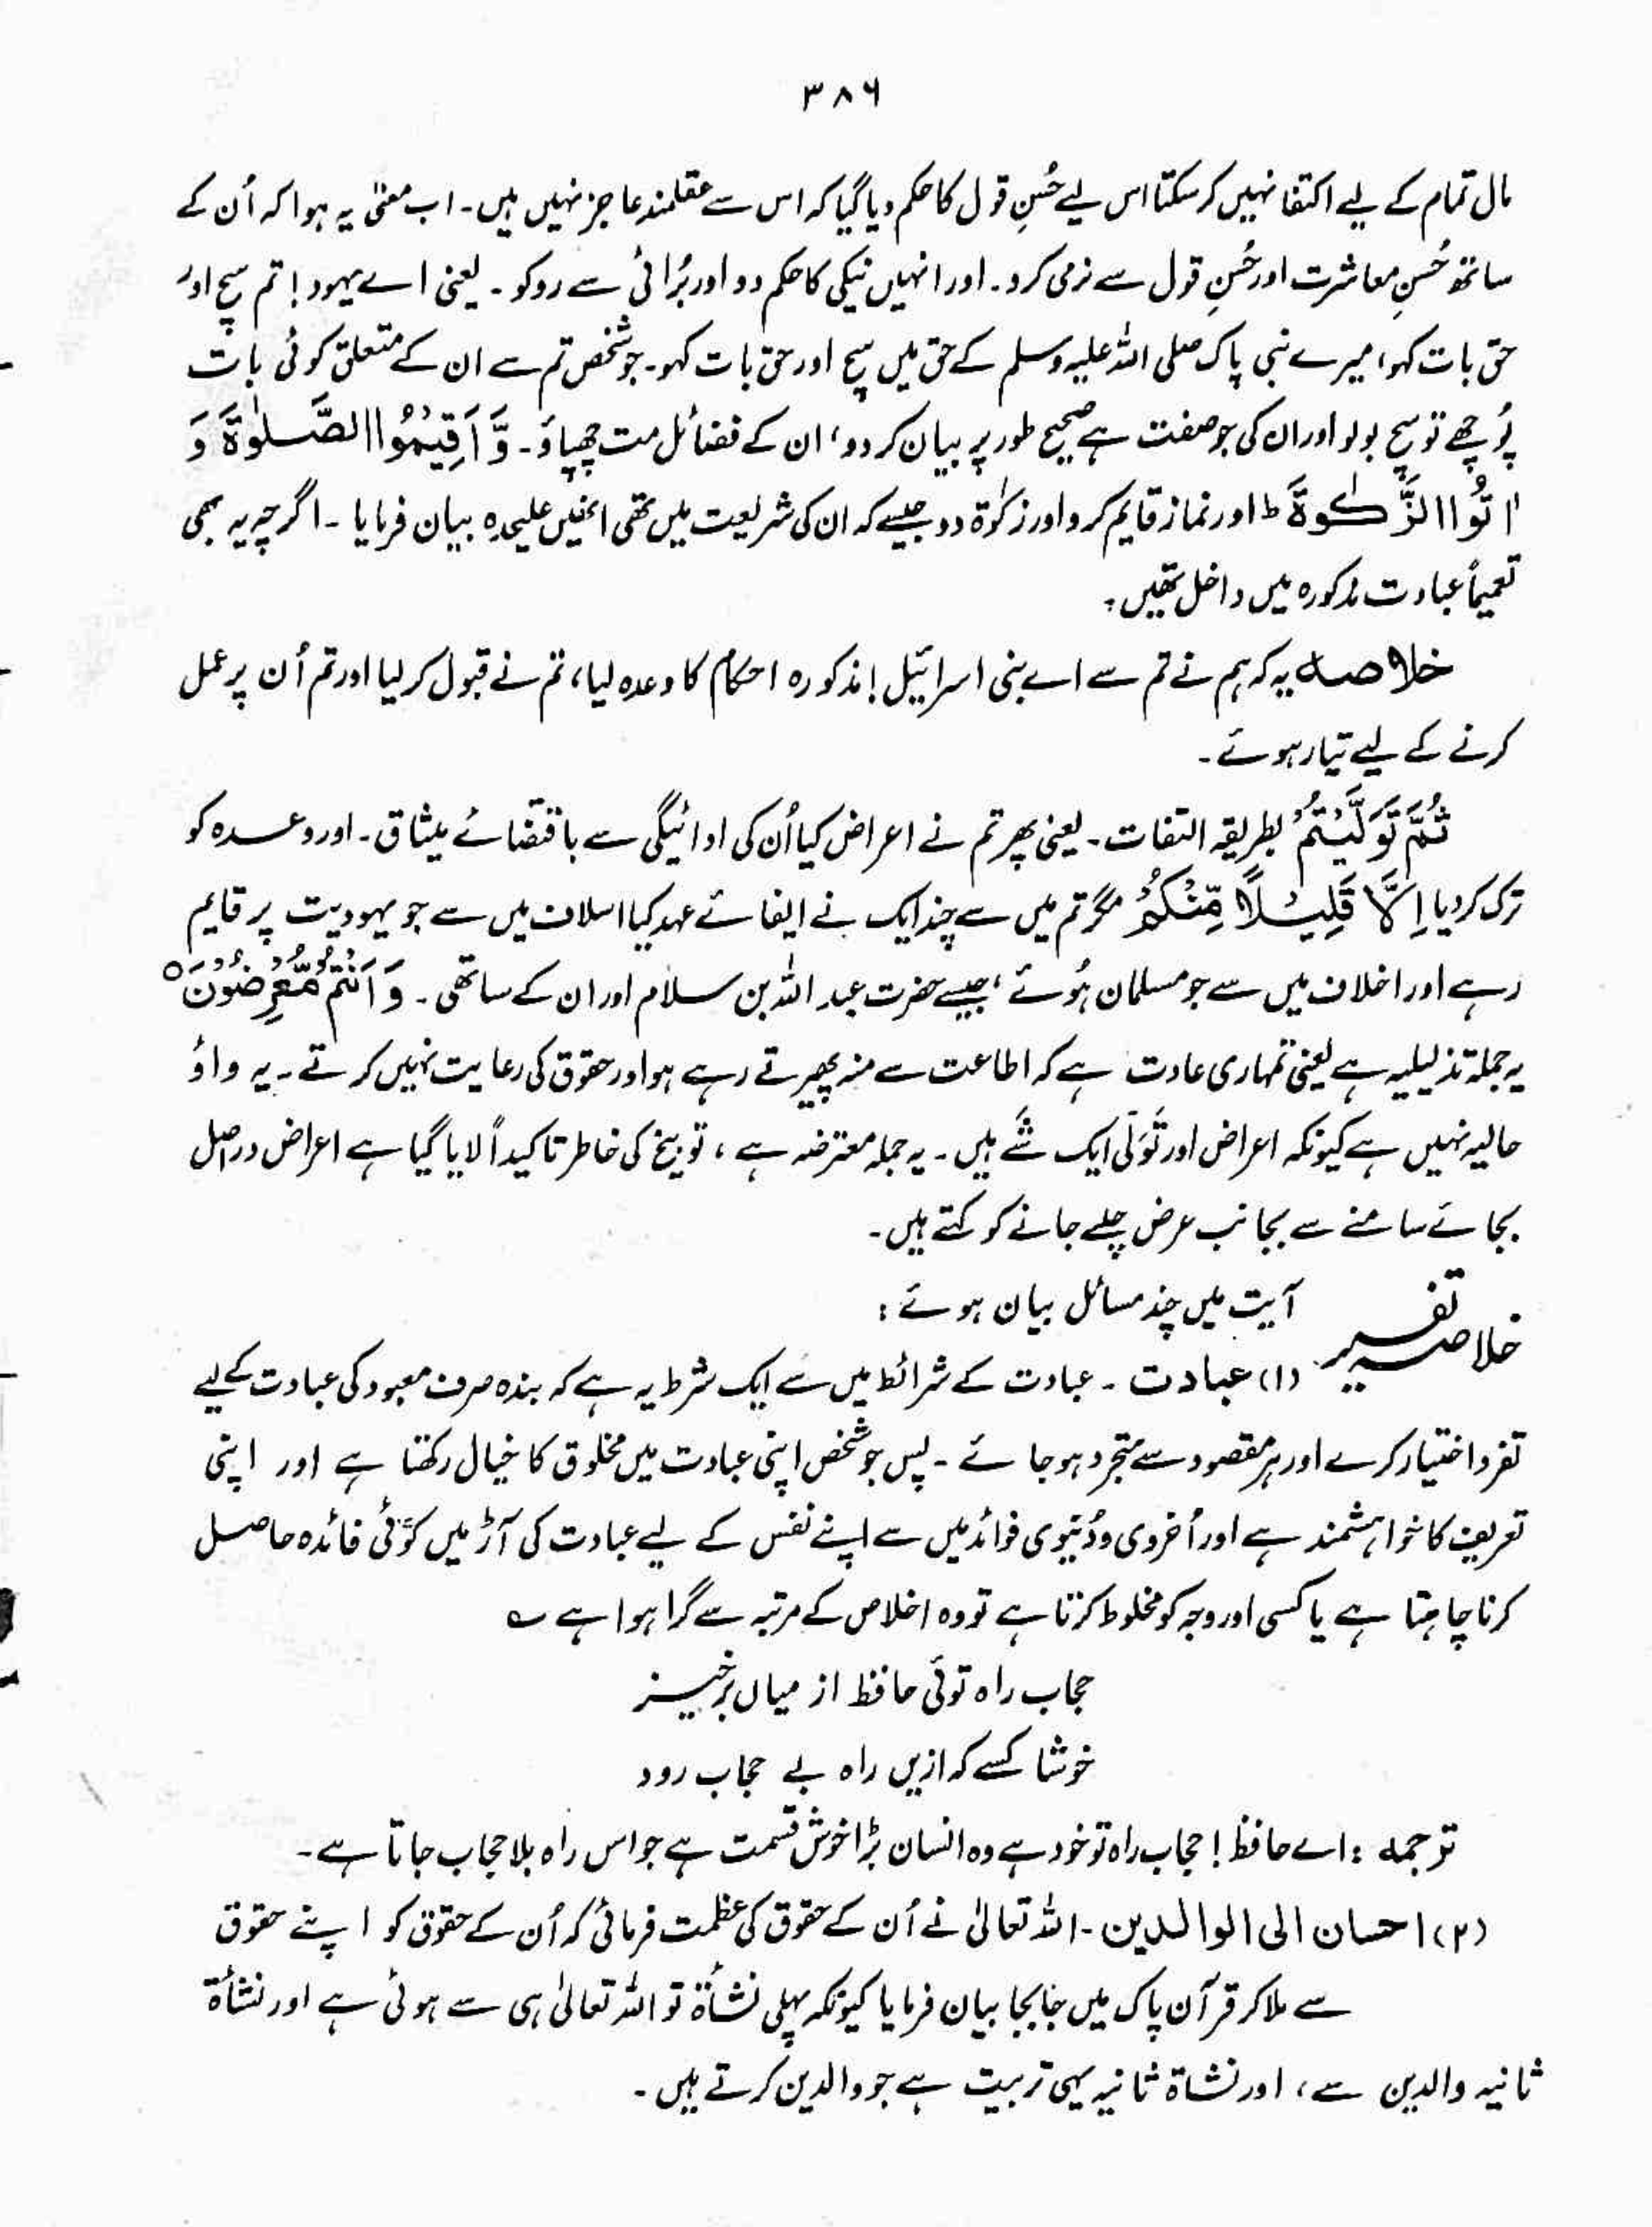 ۳۸۶
مال تمام کے لیے اکتفا نہیں کر سکتا اس لیے حُسنِ قول کا حکم دیا گیا کہ اس سے عقلمند عاجز نہیں ہیں۔ اب معنیٰ یہ ہوا کہ اُن کے
ساتھ حُسنِ معاشرت اور حُسنِ قول سے نرمی کرو۔ اور انہیں نیکی کا حکم دو اور بُرائی سے روکو۔ یعنی اے یہود! تم سچ اور
حق بات کہو، میرے نبی پاک صلی اللہ علیہ وسلم کے حق میں سچ اور حق بات کہو۔ جو شخص تم سے ان کے متعلق کوئی بات
پُوچھے تو سچ بولو اور ان کی جو صفت ہے صحیح طور پر بیان کر دو، ان کے فضائل مت چھپاؤ۔ وَّ اَقِیْمُوا الصَّلٰوةَ وَ
اٰتُوا الزَّکٰوةَ ؕ اور نماز قایم کرو اور زکوٰۃ دو جیسے کہ ان کی شریعت میں تھی انھیں علیحدہ بیان فرمایا۔ اگرچہ یہ بھی
تعمیماً عبادت مذکورہ میں داخل تھیں۔
خلاصہ یہ کہ ہم نے تم سے اے بنی اسرائیل! مذکورہ احکام کا وعدہ لیا، تم نے قبول کر لیا اور تم اُن پر عمل
کرنے کے لیے تیار ہوئے۔
ثُمَّ تَوَلَّیْتُمْ بطریقہ التفات۔ یعنی پھر تم نے اعراض کیا اُن کی ادائیگی سے باقتضائے میثاق۔ اور وعدہ کو
ترک کر دیا اِلَّا قَلِیْلًا مِّنْکُمْ مگر تم میں سے چند ایک نے ایفائے عہد کیا اسلاف میں سے جو یہودیت پر قایم
رہے اور اخلاف میں سے جو مسلمان ہُوئے، جیسے حضرت عبد اللہ بن سلام اور ان کے ساتھی۔ وَ اَنْتُمْ مُّعْرِضُوْنَ ○
یہ جملہ تذلیلیہ ہے یعنی تمہاری عادت ہے کہ اطاعت سے منہ پھیرتے رہے ہو اور حقوق کی رعایت نہیں کرتے۔ یہ واؤ
حالیہ نہیں ہے کیونکہ اعراض اور تَوَلّی ایک شَے ہیں۔ یہ جملہ معترضہ ہے، توبیخ کی خاطر تاکیداً لایا گیا ہے اعراض دراصل
بجائے سامنے سے بجانب عرض چلے جانے کو کہتے ہیں۔
خلاصہ تفسیر آیت میں چند مسائل بیان ہوئے:
(۱) عبادت۔ عبادت کے شرائط میں سے ایک شرط یہ ہے کہ بندہ صرف معبود کی عبادت کے لیے
تفرد اختیار کرے اور ہر مقصود سے متجرد ہو جائے۔ پس جو شخص اپنی عبادت میں مخلوق کا خیال رکھتا ہے اور اپنی
تعریف کا خواہشمند ہے اور اُخروی و دُنیوی فوائد میں سے اپنے نفس کے لیے عبادت کی آڑ میں کوئی فائدہ حاصل
کرنا چاہتا ہے یا کسی اور وجہ کو مخلوط کرتا ہے تو وہ اخلاص کے مرتبہ سے گرا ہوا ہے ؎
حجاب راہ توئی حافظ از میاں برخیز
خوشا کسے کہ ازیں راہ بے حجاب رود
ترجمہ: اے حافظ! حجاب راہ تو خود ہے وہ انسان بڑا خوش قسمت ہے جو اس راہ بلا حجاب جاتا ہے۔
(۲) احسان الی الوالدین۔ اللہ تعالیٰ نے اُن کے حقوق کی عظمت فرمائی کہ اُن کے حقوق کو اپنے حقوق
سے ملا کر قرآن پاک میں جابجا بیان فرمایا کیونکہ پہلی نشأۃ تو اللہ تعالیٰ ہی سے ہوئی ہے اور نشأۃ
ثانیہ والدین سے، اور نشاۃ ثانیہ یہی تربیت ہے جو والدین کرتے ہیں۔